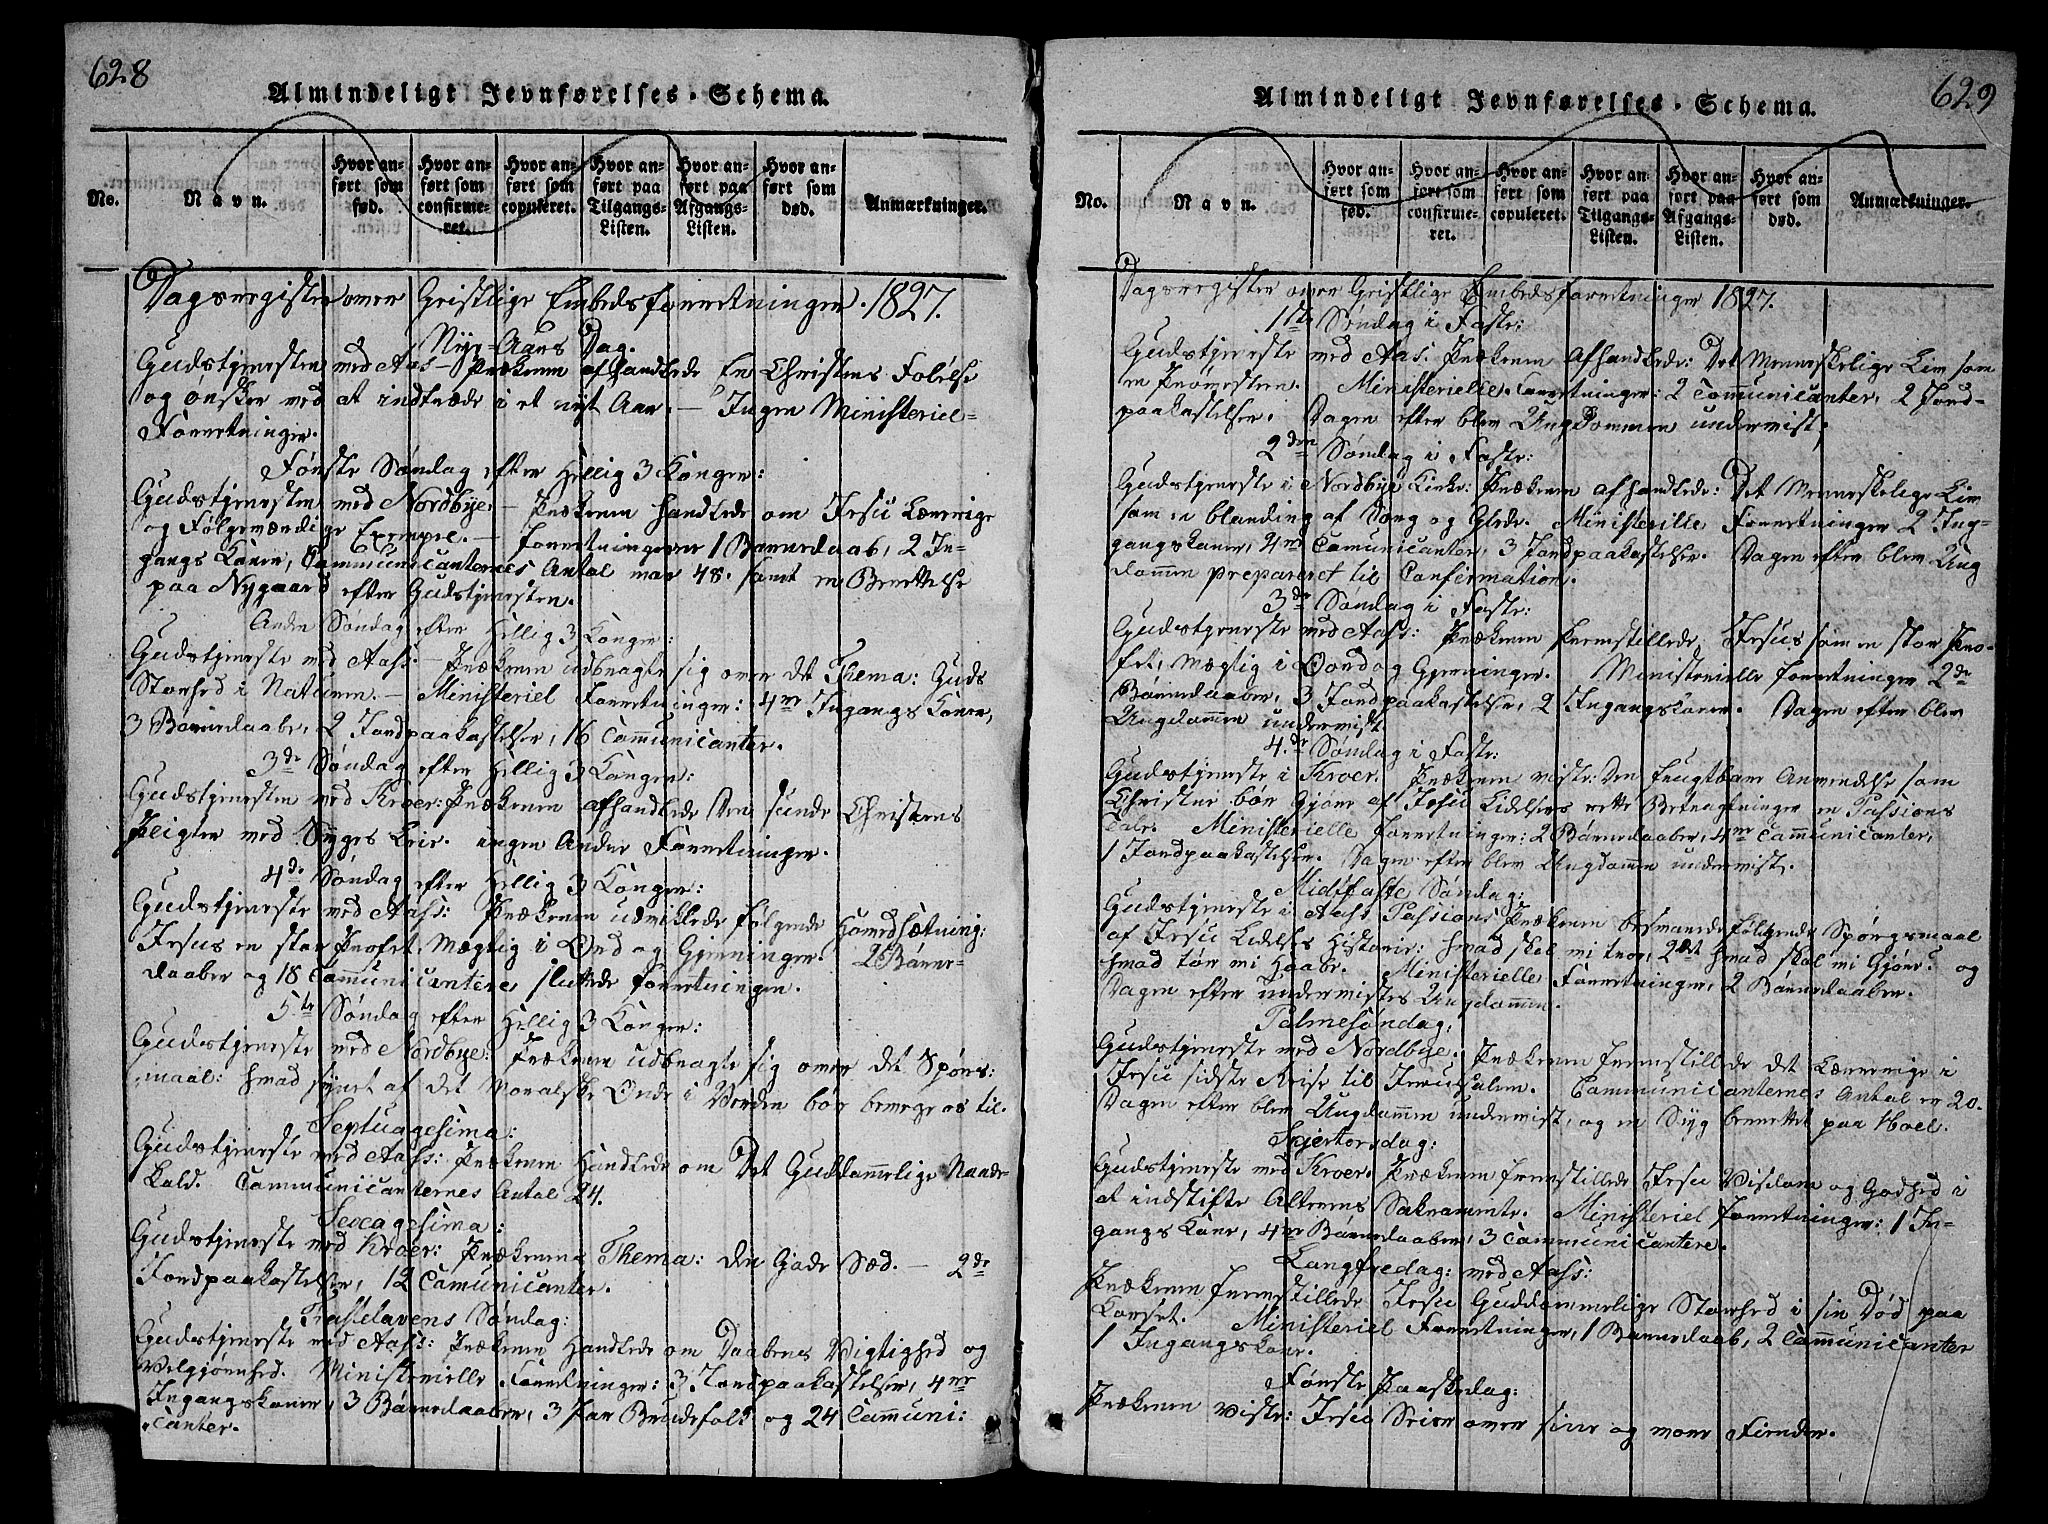 628
Almindeligt Jevnførelses-Schema.
No.
Navn.
Hvor anført som fød.
Hvor anført som confirmeret.
Hvor anført som copuleret.
Hvor anført paa Tilgangs-Listen.
Hvor anført paa Afgangs-Listen.
Hvor anført som død.
Anmærkninger.
Dagsregister over Geistlige Embedsforretninger. 1827.
Nyt-Aars Dag.
Gudstjeneste med Aas - Prækenen afhandlede En Christens Følelse
og ønsker ved at indtræde i et nyt Aar. - Ingen Ministeriel-
Forretninger.
Første Søndag efter Hellig 3 Konger:
Gudstjenesten med Nordbye - Prækenen handlede om Jesu Lærerige
og Følgeværdige Exempel. - Forretningerne 1 Barnedaab, 2 In-
gangs Koner, Communicanternes Antal var 48. samt en Berettelse
paa Nygaard efter Gudstjenesten.
Anden Søndag efter Hellig 3 Konger:
Gudstjeneste med Aass. - Prækenen udbragte sig over det Thema: Guds
Storhed i Naturen. - Ministeriel Forretninger: 4re Ingangs Koner,
3 Barnedaabe, 2 Jordpaakastelser, 16 Communicanter.
3de Søndag efter Hellig 3 Konger:
Gudstjenesten med Kroer: Prækenen afhandlede Den sunde Christens
Pligter ved Syges Leie. ingen Andre Forretninger.
4de Søndag efter Hellig 3 Konger:
Gudstjeneste med Aass: Prækenen udviklede følgende Hovedsætning:
Jesus en stor Profet, Mægtig i Ord og Gjerninger. 2 Børne-
daaber og 18 Communicantere sluttede forretningen.
5te Søndag efter Hellig 3 Konger:
Gudstjeneste med Nordbye: Prækenen udbragte sig over det Spørs:
maal: hvad synet af det Moralske Onde i Verden bør bevæge os til.
Septuagesima:
Gudstjeneste med Aass: Prækenen Handlede om Det Guddommelige Naade-
Kald. Communicanternes Antal 24.
Sexagesima:
Gudstjeneste med Kroer: Prækenens Thema: den Gode Sæd. - 2de
Jordpaakastelser, 12 Communicanter.
Fastelavens Søndag:
Gudstjeneste med Aass: Prækenen Handlede om Daabens Vigtighed og
Velgjørenhed. Ministerielle Forretninger: 3 Jordpaakastelser, 4re
Ingangskoner, 3 Børnedaaber, 3 Par Brudefolk og 24 Communi:
canter.
629
Almindeligt Jevnførelses-Schema.
No.
Navn.
Hvor anført som fød.
Hvor anført som confirmeret.
Hvor anført som copuleret.
Hvor anført paa Tilgangs-Listen.
Hvor anført paa Afgangs-Listen.
Hvor anført som død.
Anmærkninger.
Dagsregister over Geistlige Embedsforretninger 1827.
1ste Søndag i Faste:
Gudstjeneste med Aas. Prækenen afhandlede: Det Menneskelige Liv som
en Prøvesteen. Ministerielle. Forretninger: 2 Communicanter, 2 Jord-
paakastelser. Dagen efter blev Ungdommen underviist;
2den Søndag i Faste:
Gudstjeneste i Nordbye Kirke: Prækenen afhandlede: Det Menneskelige Liv
som en blanding af Sorg og Glede. Ministerielle Forretninger 2 In-
gangskoner, 4re Communicanter, 3 Jordpaakastelser. Dagen efter blev Ung
dommen prepareret til Confirmation.
3de Søndag i Faste:
Gudstjeneste med Aass: Prækenen fremstillede Jesus som en stor Pro-
fet, Mægtig i Ord og Gjerninger. Ministerielle forretninger 2de
Børnedaaber, 3 Jordpaakastelser, 2 Ingangskoner. Dagen efter blev
Ungdommen underviist.
4de Søndag i Faste:
Gudstjeneste i Kroer. Prækenen viste: Den frugtbare Anvendelse som
Christne bør Gjøre af Jesu Lidelsers rette Betragtninger en Passions
Tale. Ministerielle forretninger: 2 Børnedaaber, 4re Communicanter,
1 Jordpaakastelse. Dagen efter blev Ungdommen underviist.
Midtfaste Søndag:
Gudstjeneste i Aass. Passions Prækenen besvarede følgende Spørgsmaal
af Jesu Lidelses Historie: hvad skal vi troe, 2det hvad skal vi Gjøre? og
hvad tør vi Haabe. Ministerielle Forretninger, 2 Børnedaaber.
Dagen efter undervistes Ungdommen.
Palmesøndag:
Gudstjeneste med Nordbye. Prækenen fremstillede det Lærerige i
Jesu sidste Reise til Jerusalem. Communicanternes Antal er 20.
Dagen efter blev Ungdommen underviist, og en Syg berettet paa Hoel.
Skjertorsdag:
Gudstjeneste med Kroer. Prækenen fremstillede Jesu Visdom og Godhed i
at indstifte Alterens Sakramente. Ministeriel forretninger: 1 In-
gangs Kone, 4re Børnedaaber, 3 Communicantere.
Langfredag: med Aass:
Prækenen fremstillede Jesu Guddommelige Storhed i sin Død paa
Korset. Ministeriel Forretninger, 1 Barnedaab, 2 Communicanter
1 Ingangskone.
Første Paaskedag:
Prækenen viste: Jesu Seier over sine og vore Fiender.